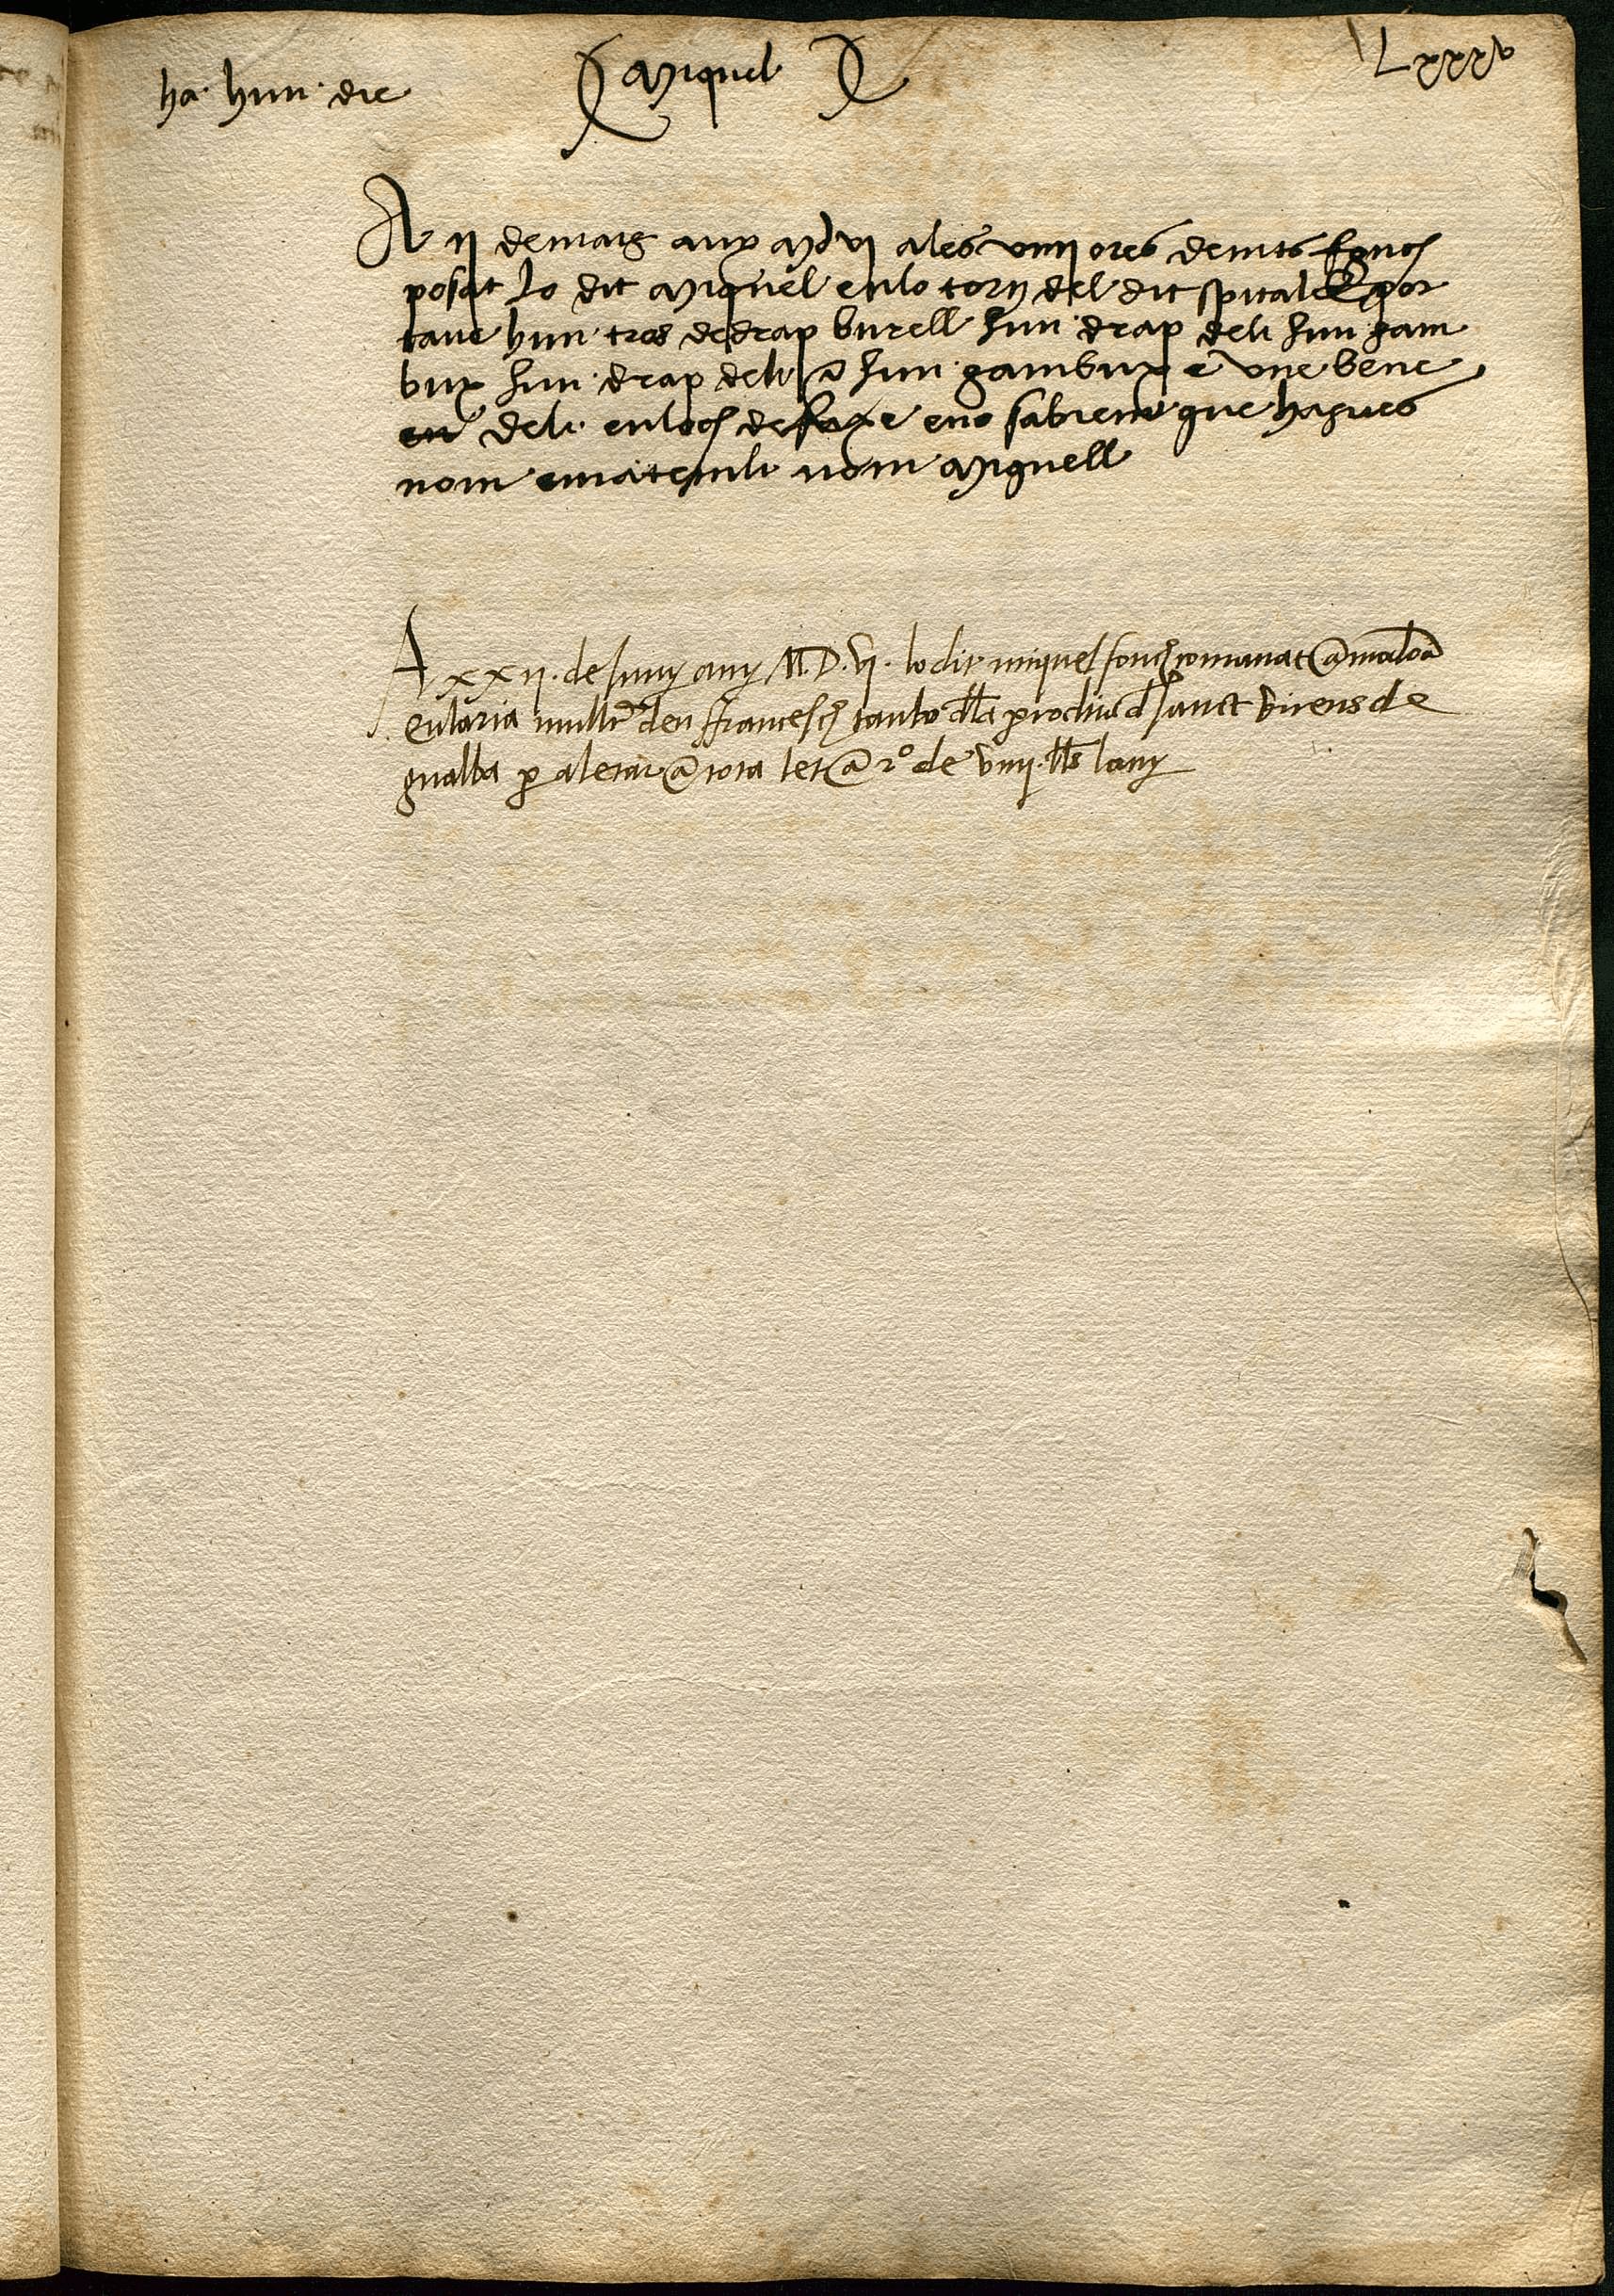 ha hun die
Miquel
Lxxxv
A ij de mars anx MDVI a les viiij ores de nits fonch
posat lo dit Miquel en lo torn del dit spital e por
tave hun tros de drap burell hun drap de li hun gam
bux hun drap de li a hun gambux e vne bene
de li en loch de faxe e no sabiem que hagues
nom e matem li nom Miquell
A xxij. de Juny any M.D.vj. lo dit miquel fonch comanat a madona
eularia muller den ffrancesch de la parrochia de sanct vicens de
gualba per aletar a tota let a rº de viiij. lls lany